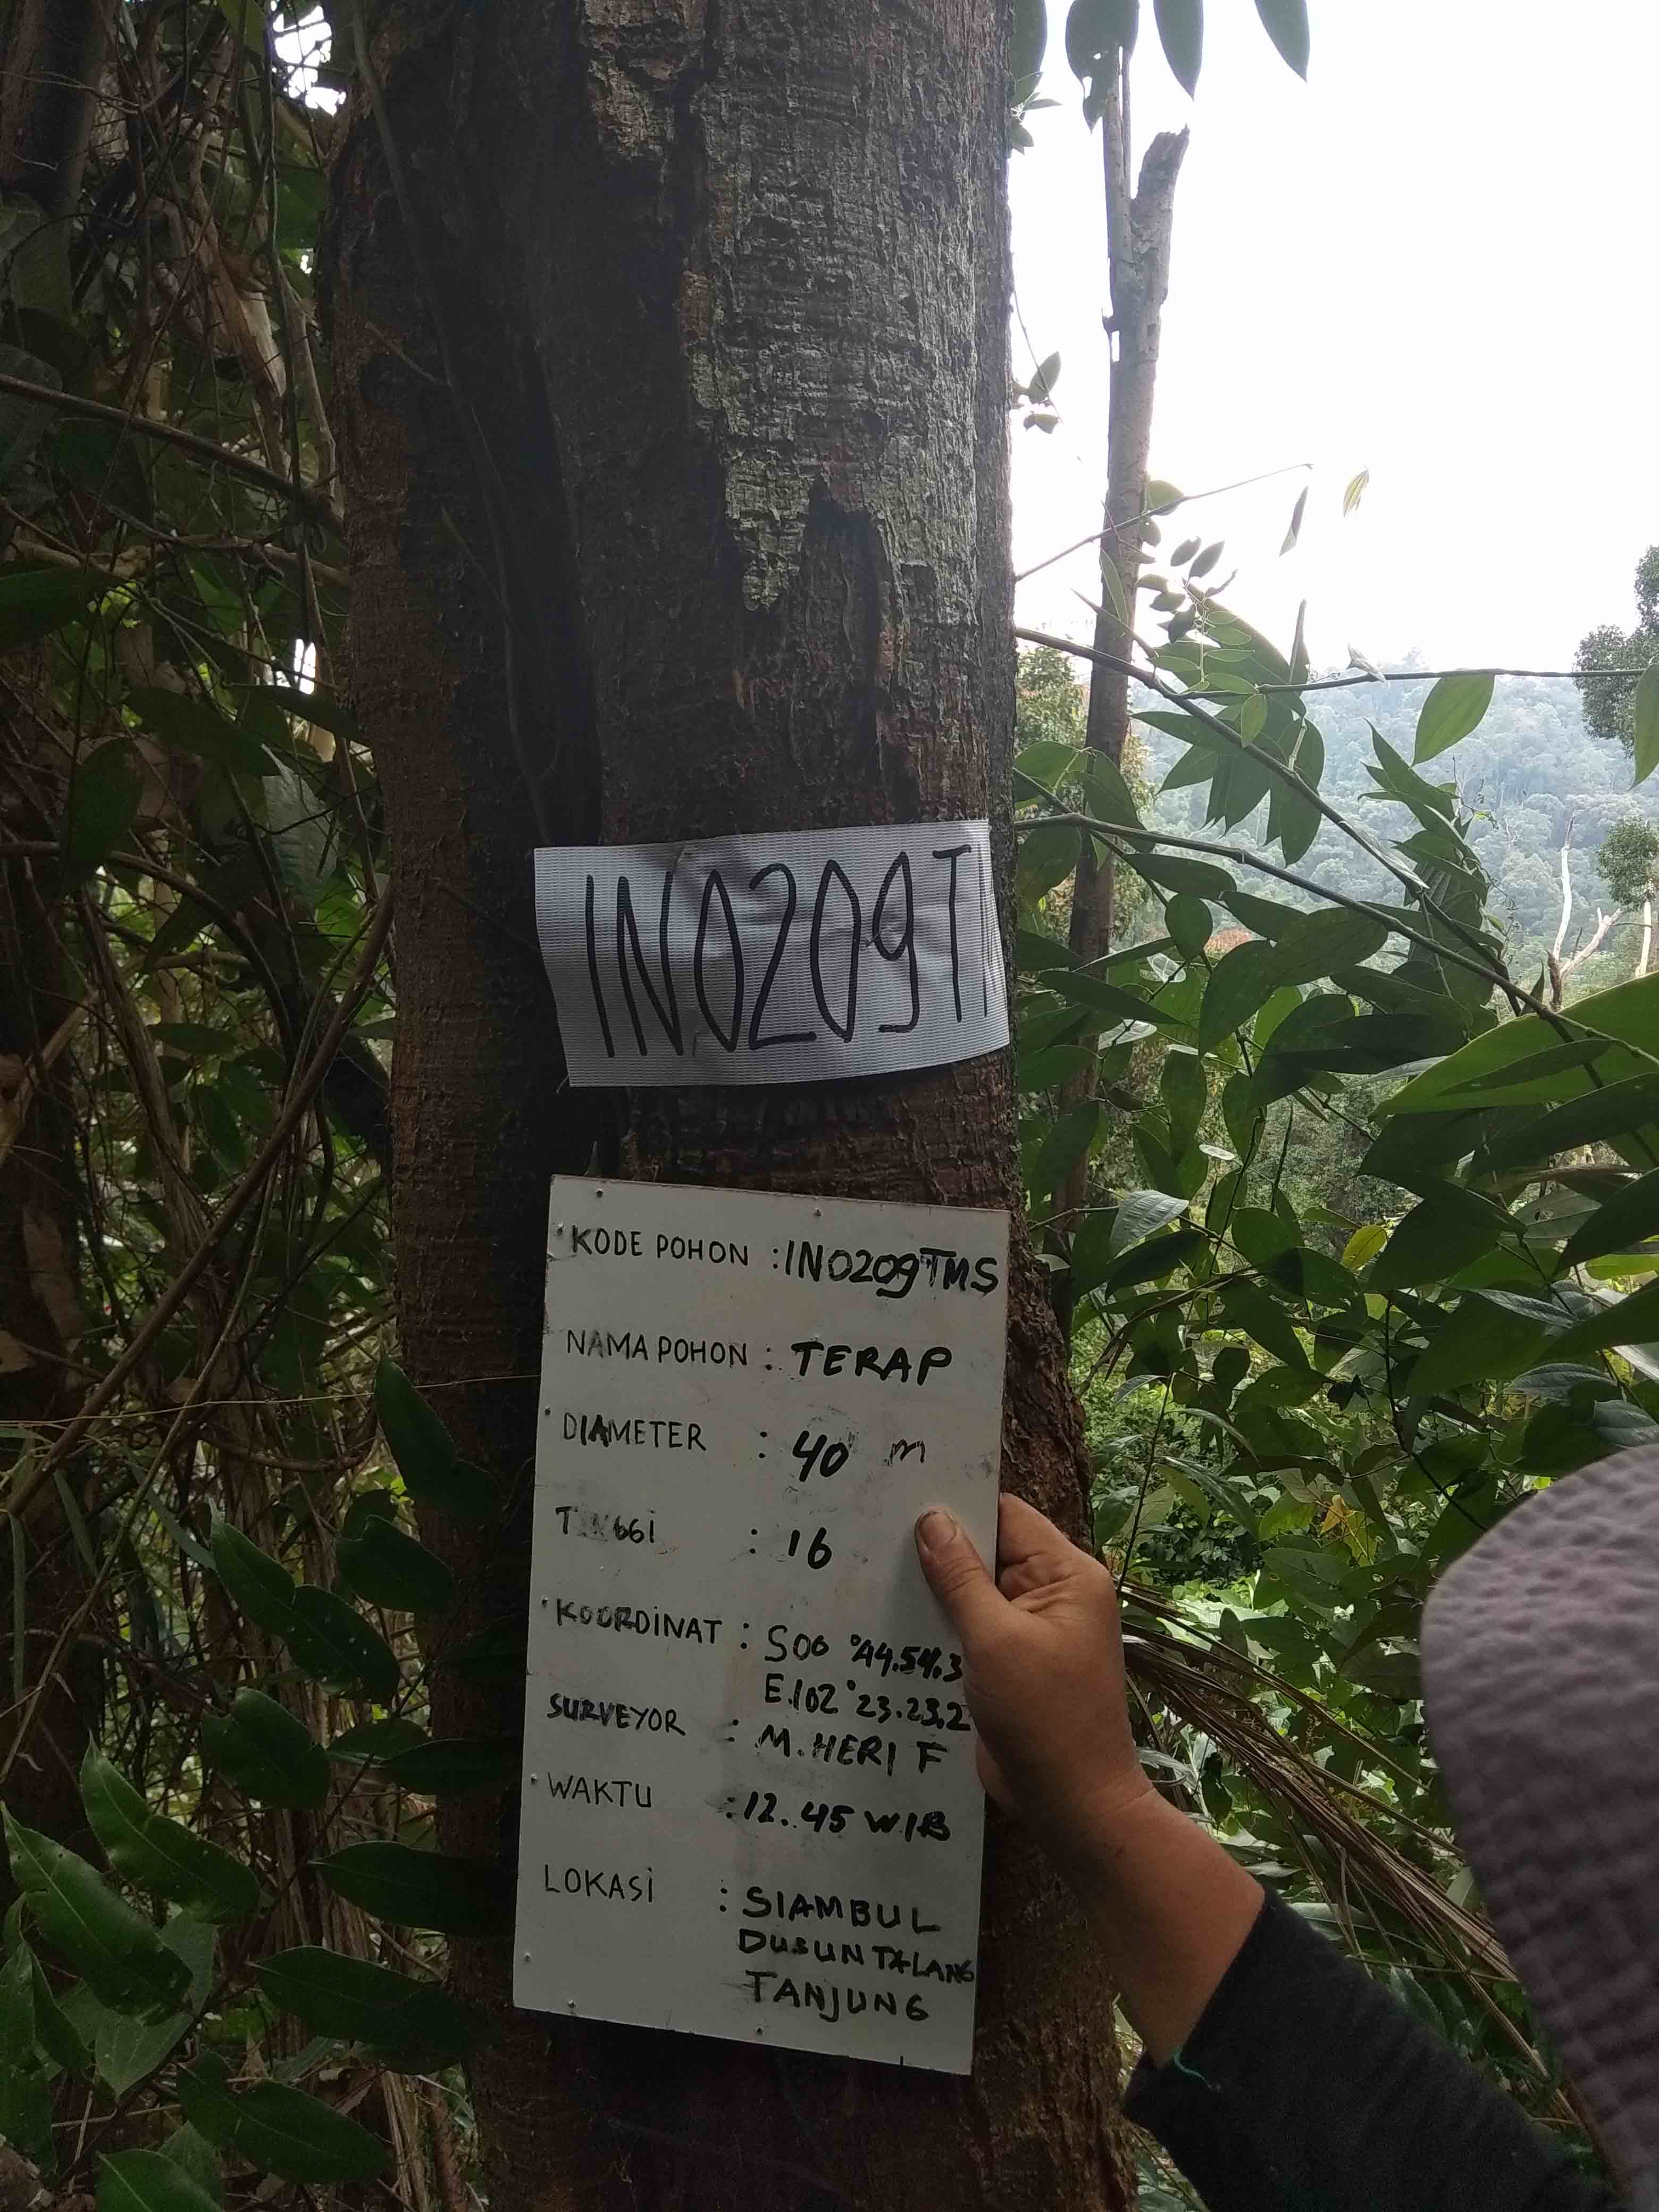 IN0209T
KODE POHON : IN0209TMS
NAMA POHON : TERAP
DIAMETER : 40 m
TINGGI : 16
KOORDINAT : S00°44.54.3
E.102°23.23.2
SURVEYOR : M. HERI F
WAKTU : 12.45 WIB
LOKASI : SIAMBUL
DUSUN TALANG
TANJUNG